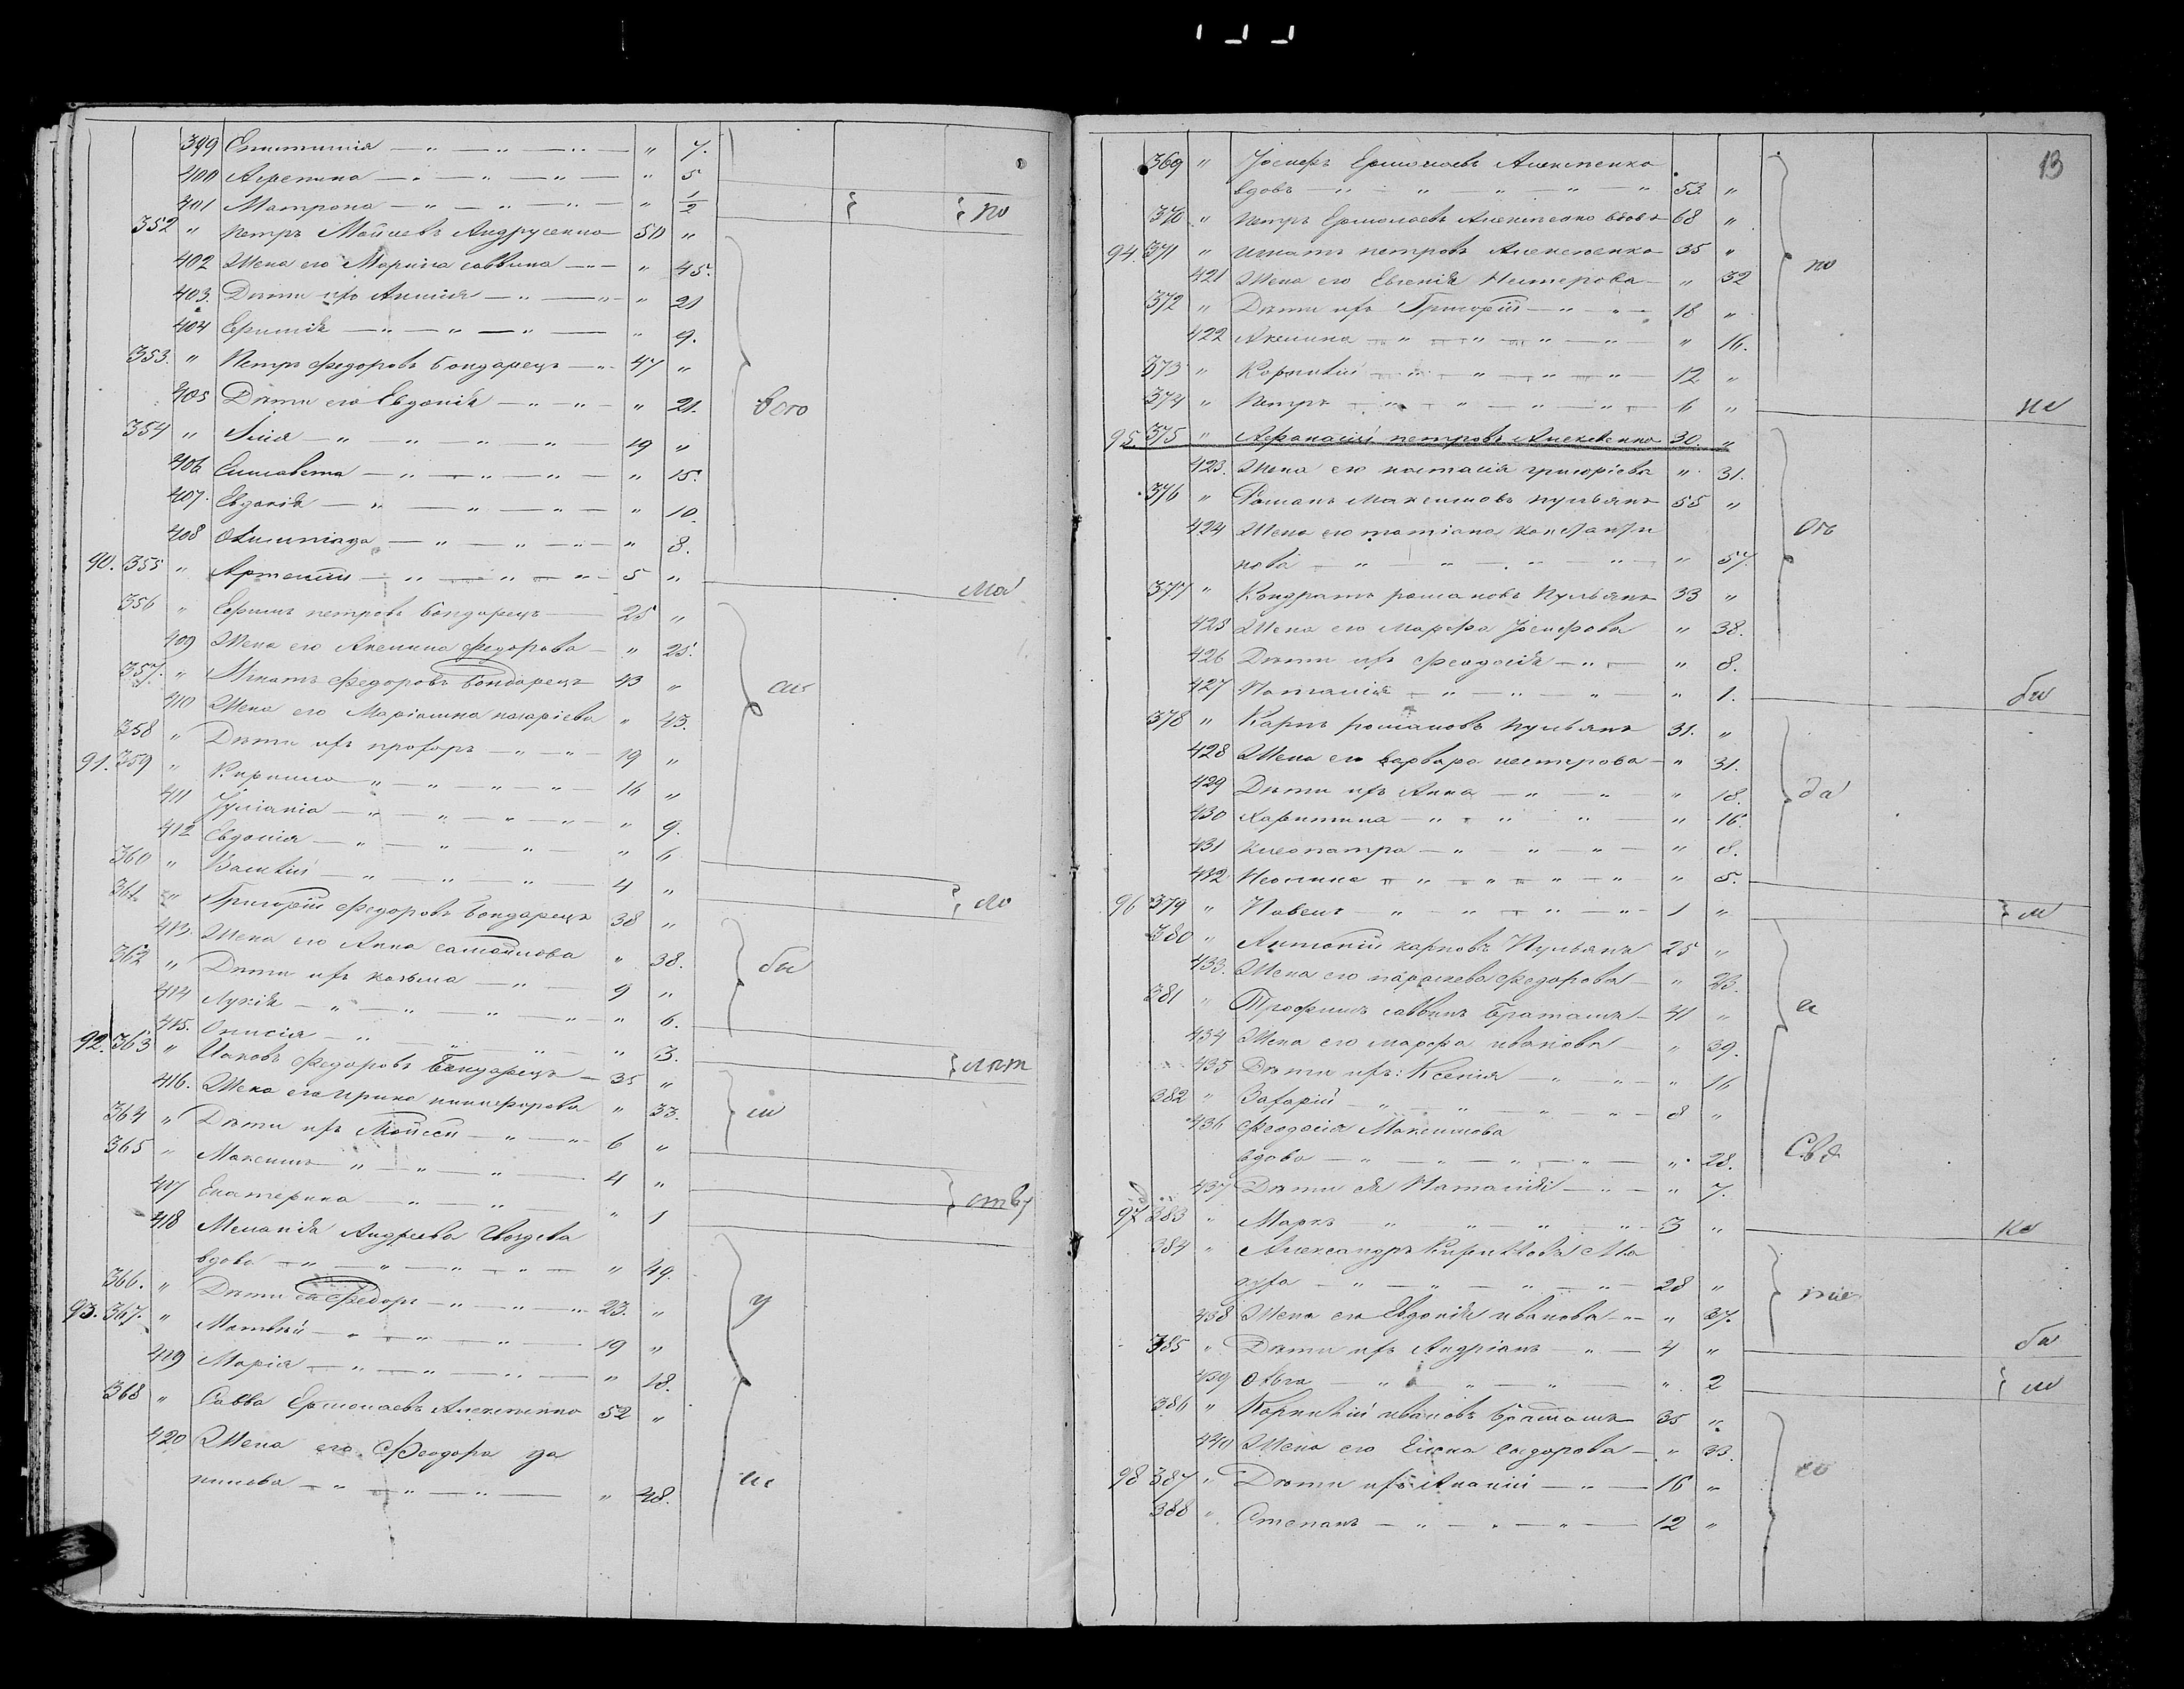 399 Епистимия — " — " — " — " 7.
400 Агрепина — " — " — " — " 5
401 Матрона — " — " — " — " 1/2
по
352 " Петръ Мойсеевъ Андрусенко — 50 "
402 Жена его Марина саввина — " — " 45.
403. Дѣти ихъ Анисия — " — " — " 21
404 Ефимія — " — " — " — " 9.
353. " Петръ Федоровъ Бондарецъ — " 47 "
405 Дѣти его Евдокія — " — " — " 21.
всго
354 " Илия — " — " — " — " — 19 "
406 Елисавета — " — " — " — " 15.
407. Евдокія — " — " — " — " 10.
408 — " — " — " — " 8.
90. 355 " Артемий — " — " — " — 5 "
ма
356 " Ефимъ петровъ Бондарецъ — 25 "
409 Жена его Акелина Федорова — " 25.
357. " Игнатъ Федоровъ Бондарецъ 43 "
410 Жена его Маріамна назаріева " 43.
358 " Дѣти ихъ прохоръ — " — " — 19 "
91. 359 " Кирило — " — " — " — " — 16 "
411 Іуліанія — " — " — " — " — " 9.
412 Евдокія — " — " — " — " 6
360 " Василій — " — " — " — 4 "
361 " Григорій Федоровъ Бондарецъ 38 "
ло
413. Жена его Анна самойлова " 38.
362 " Дѣти ихъ козьма — " — 9 "
бы
414 Лукія — " — " — " — " — " 6.
415. Онисія — " — " — " — " 3.
92. 363 " Иаковъ Федоровъ Бондарецъ — 35 "
лѣт
416. Жена его ирина никифорова " 33.
364 " Дѣти ихъ Мойсей — " — " — 6 "
365 " Максимъ — " — " — " — 4 "
417 Екатерина — " — " — " — " 1
ству
418 Меланія Андреева Гвоздева
вдова — " — " — " — " — " 49.
366. " Дѣти ея Федоръ — " — " — " 23. "
у
93. 367. " Матвѣй — " — " — " — 19 "
419 Марія — " — " — " — " 18.
368 " Савва Ермолаевъ Алексѣенко 52 "
420 Жена его Феодора да
нилова — " — " — " — " 48.
13
369 " Іосифъ Ермолаевъ Алексѣенко
вдовъ — " — " — " — " — " 53. "
370 " петръ Ермолаевъ Алексѣенко вдовъ 68 "
94. 371 " игнатъ петровъ Алексѣенко 35 "
по
421 Жена его Евгенія Нестерова — " 32
372 " Дѣти ихъ Григорій — " — " — 18 "
422 Акелина — " — " — " — " — " 16.
373 " Корнилій — " — " — " — " — 12 "
374 " Петръ — " — " — " — " — 6 "
не
95. 375 " Афанасій петровъ Алексѣенко 30. "
423. Жена его настасія григоріева " 31.
376 " Романъ Максимовъ Кульвяпъ 55 "
424 Жена его татіана константи
нова — " — " — " — " — " 57.
377 " Кондратъ романовъ Кульвяпъ 33 "
425 Жена его Марфа Іосифова " 38.
426 Дѣти ихъ Феодосія — " — " 8.
427 Наталія — " — " — " — " 1.
бы
378 " Карпъ романовъ Кульвяпъ 31. "
428 Жена его варвара нестерова — " 31.
429 Дѣти ихъ Анна — " — " — " 18.
да
430 Харитина — " — " — " — " 16.
431 Клеопатра — " — " — " — " 8.
432 Неонила — " — " — " — " — " 5.
96 379 " Павелъ — " — " — " — " — 1 "
380 " Антоній карповъ Кульвяпъ 25 "
433. Жена его параскева Федорова — " 23.
381 " Трофимъ саввинъ Браташъ — 41 "
434 Жена его марфа иванова — " 39.
435 Дѣти ихъ: Ксенія — " — " — " 16
382 " Захарій — " — " — " — " — 8 "
436 Феодосія Максимова
вдова — " — " — " — " — " 28.
Свд
437 Дѣти ея Наталія — " — " 7.
97 383 " Марко — " — " — " — 3 "
384 " Александръ Кирилловъ Ма
— " — " — " — " — 28 "
438 Жена его Евдокія иванова — " 37.
385 " Дѣти ихъ Андріанъ — " — 4 "
439 Ольга — " — " — " — " 2
386 " Корнилій ивановъ Браташъ 35 "
440 Жена его Елена сидорова — " 33.
98 387 " Дѣти ихъ Ананій — " — 16 "
388 " Степанъ — " — " — " — 12 "